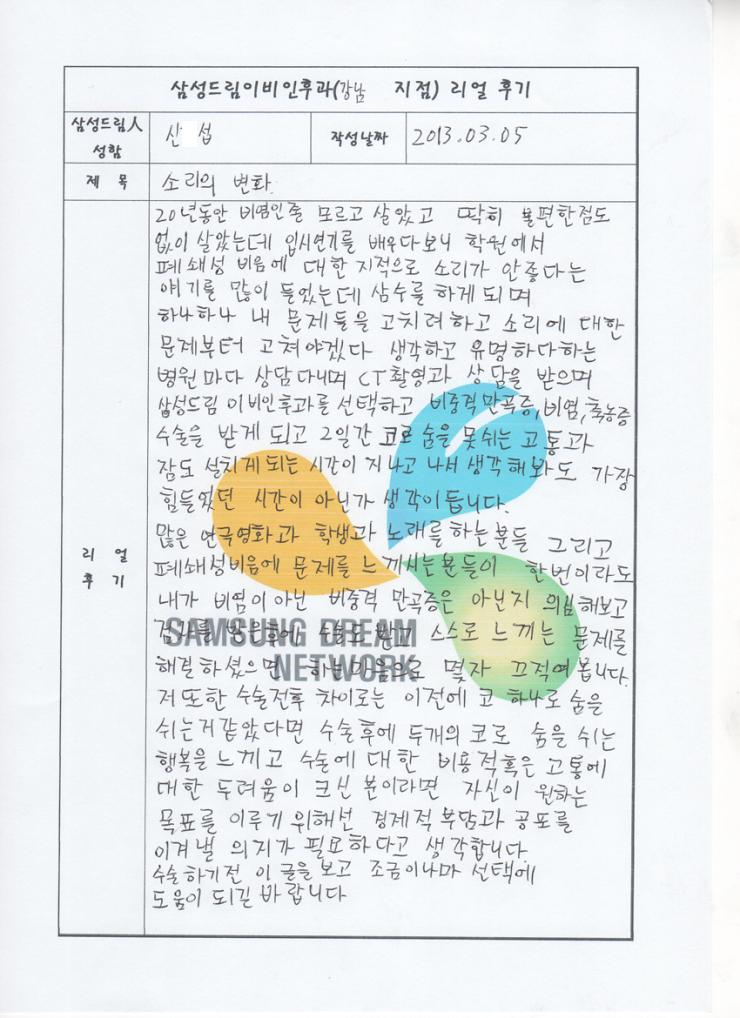 삼성드림이비인후과(강남 지점) 리얼 후기
삼성드림人
성함
신 섭
작성날짜
2013.03.05
제 목
소리의 변화.
리 얼
후 기
20년동안 비염인줄 모르고 살았고 딱히 불편한점도
없이 살았는데 입시연기를 배우다보니 학원에서
폐쇄성 비음에 대한 지적으로 소리가 안좋다는
얘기를 많이 들었는데 삼수를 하게 되며
하나하나 내 문제들을 고치려하고 소리에 대한
문제부터 고쳐야겠다 생각하고 유명하다하는
병원마다 상담다니며 CT촬영과 상담을 받으며
삼성드림 이비인후과를 선택하고 비중격만곡증,비염,축농증
수술을 받게 되고 2일간 코로 숨을 못쉬는 고통과
잠도 설치게 되는 시간이 지나고 나서 생각해봐도 가장
힘들었던 시간이 아닌가 생각이 듭니다.
많은 연극영화과 학생과 노래를 하는 분들 그리고
폐쇄성비음에 문제를 느끼시는분들이 한번이라도
내가 비염이 아닌 비중격 만곡증은 아닌지 의심해보고
검사를 받은후에 수술도 받고 스스로 느끼는 문제를
해결하셨으면 하는마음으로 몇자 끄적여봅니다.
저 또한 수술전후 차이로는 이전에 코 하나로 숨을
쉬는거같았다면 수술후에 두개의 코로 숨을 쉬는
행복을 느끼고 수술에 대한 비용적혹은 고통에
대한 두려움이 크신 분이라면 자신이 원하는
목표를 이루기 위해선 경제적부담과 공포를
이겨낼 의지가 필요하다고 생각합니다.
수술하기전 이 글을보고 조금이나마 선택에
도움이 되길 바랍니다
SAMSUNG DREAM
NETWORK